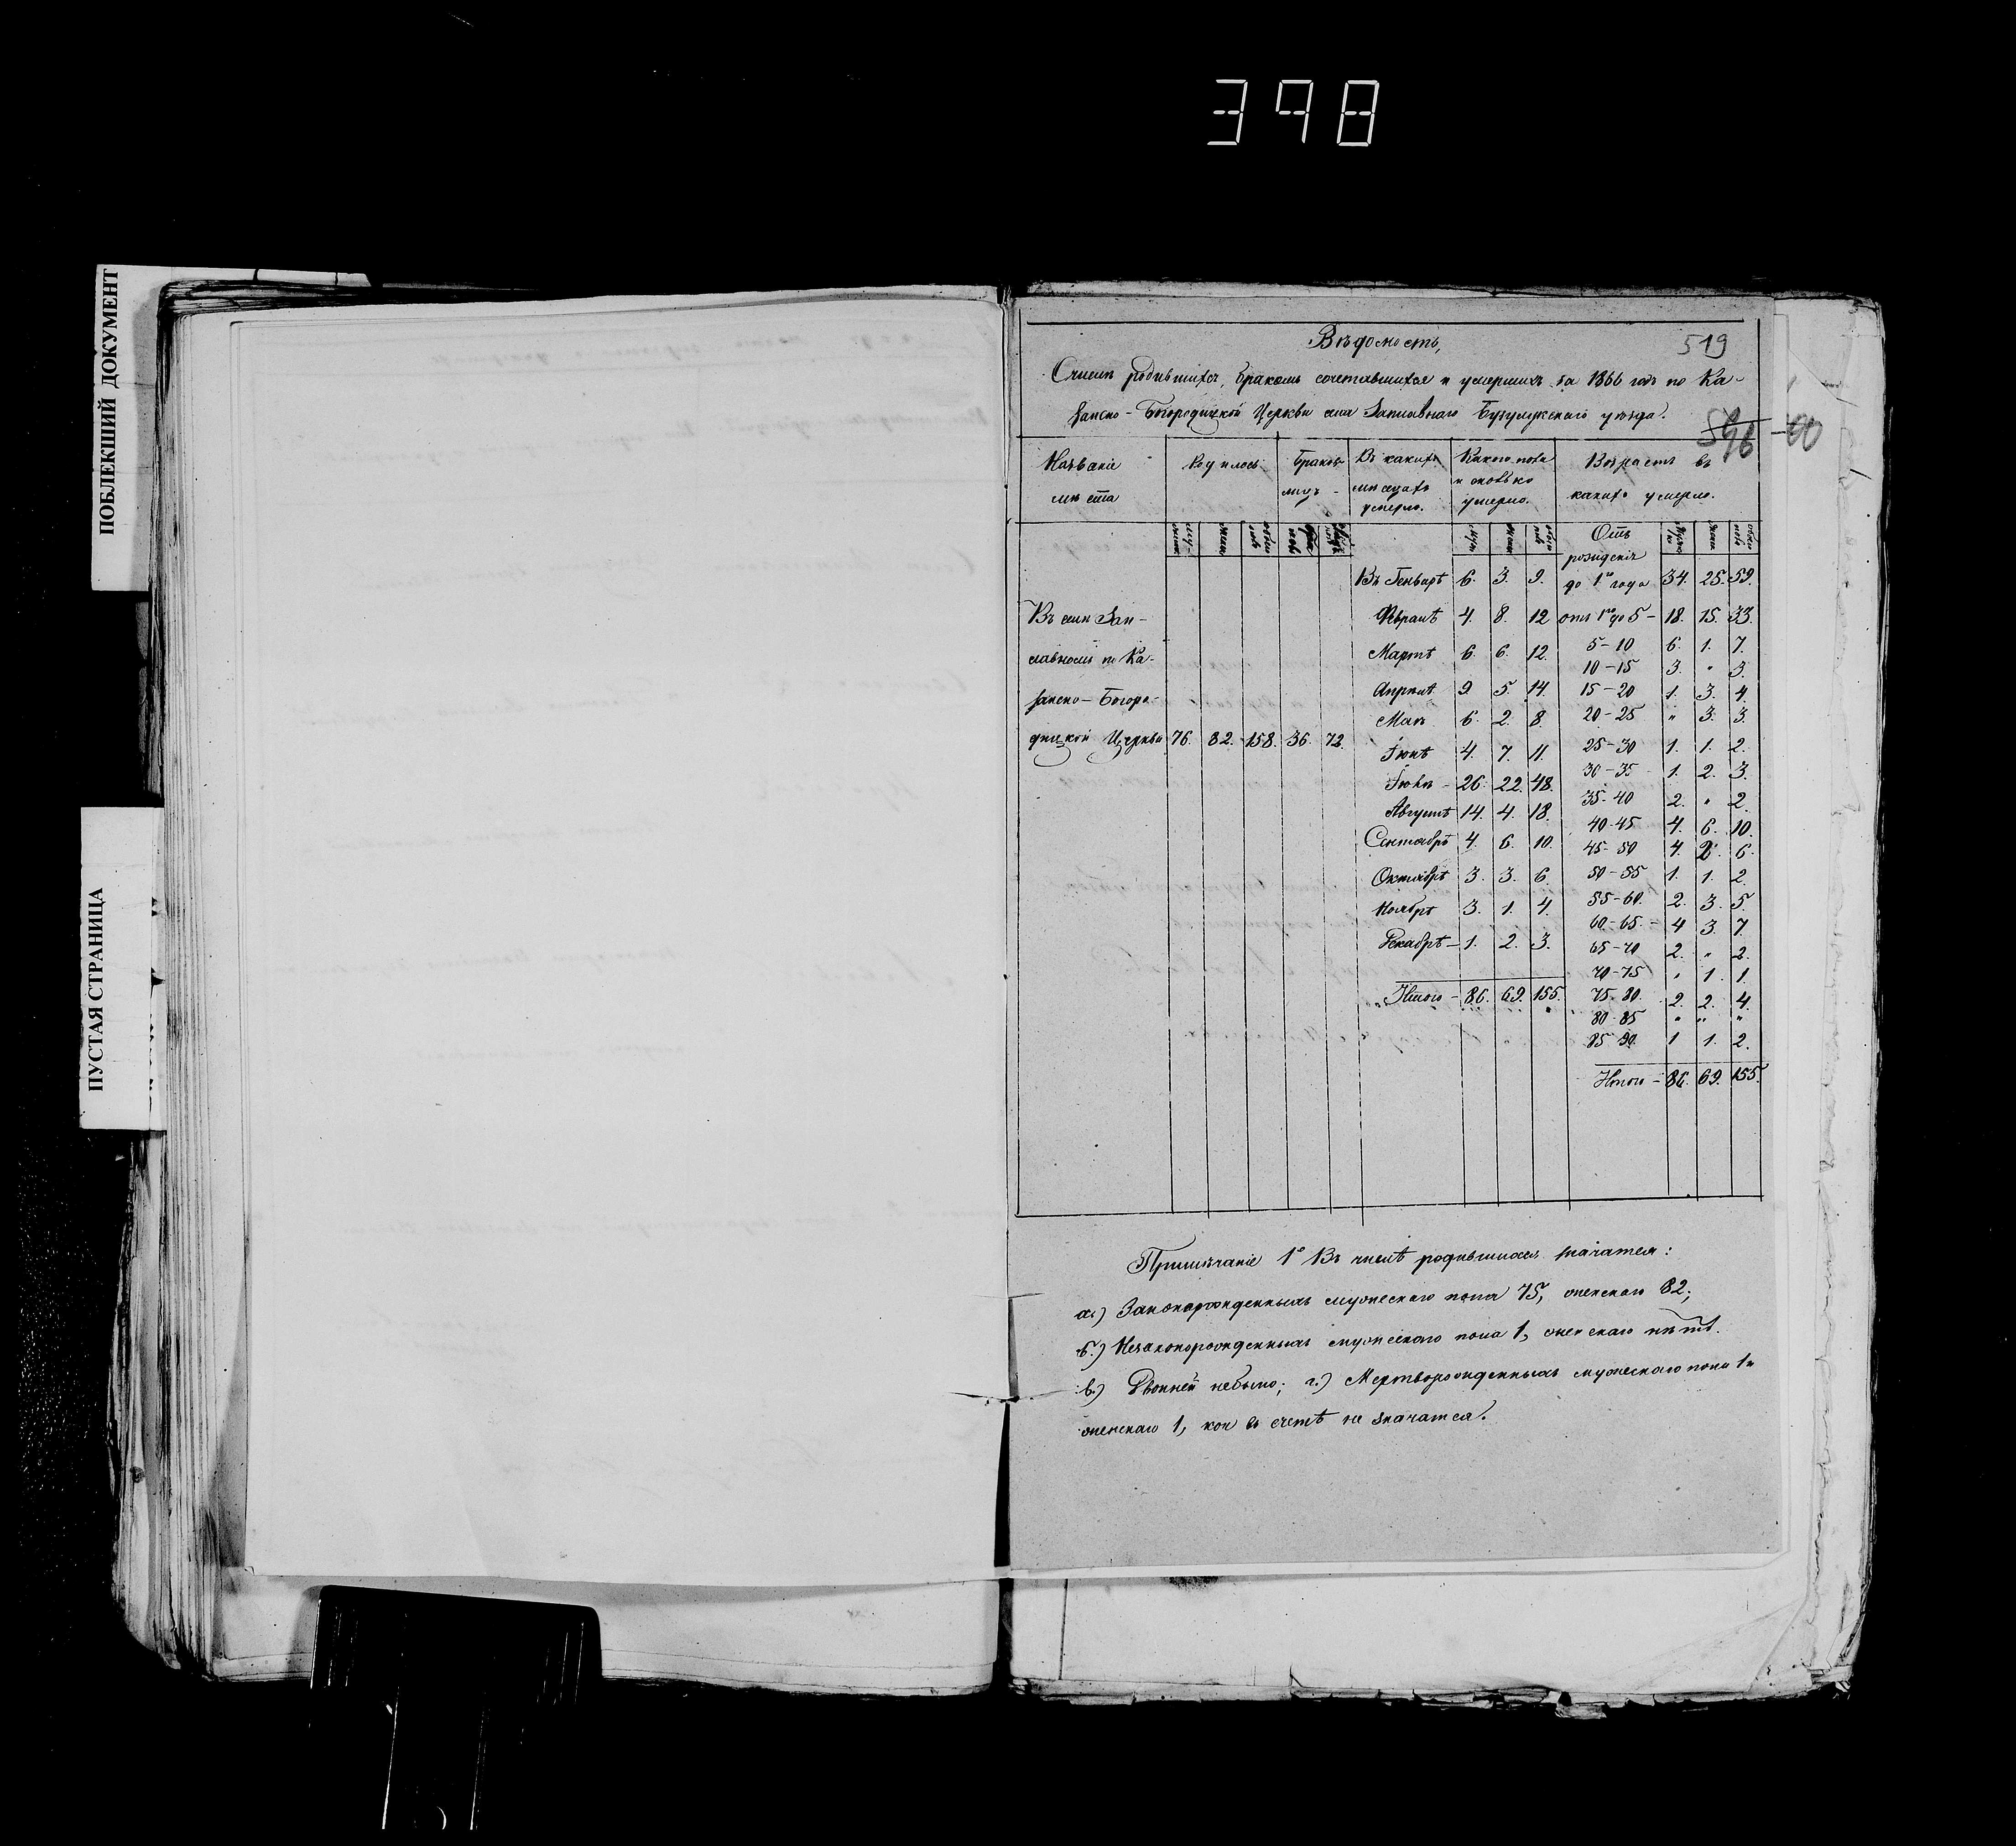 398
ПОБЛЕКШИЙ ДОКУМЕНТ
ПУСТАЯ СТРАНИЦА
519
Вѣдомость,
Числѣ родившихся, бракомъ сочетавшихся и умершихъ за 1866 годъ по Ка-
занско-Богородицкой Церкви села Заплавнаго Бузулукскаго уѣзда.
Названіе мѣста | Родилось | Браковъ лицъ | Въ какихъ мѣсяцахъ умерло. | Какого пола и сколько умерло. | Возрастъ въ какихъ умерло.
Отъ рожденія
Въ Генварѣ 6. 3. 9. до 1го года 34. 25. 59.
Въ селѣ Зап- Февралѣ 4. 8. 12 отъ 1го до 5 - 18. 15. 33.
лавномъ по Ка- Мартѣ 6. 6. 12. 5-10 6. 1. 7.
10-15 3. " 3.
занско-Богоро- Апрѣлѣ 9 5. 14. 15-20 1. 3. 4.
Маѣ 6. 2. 8. 20-25 " 3. 3.
дицкой Церкви 76. 82. 158. 36. 72. Іюнѣ 4. 7. 11. 25-30 1. 1. 2.
30-35 1. 2. 3.
Іюлѣ - 26. 22. 48. 35-40 2. " 2.
Августѣ 14. 4. 18. 40-45 4. 6. 10.
Сентябрѣ 4. 6. 10. 45-50 4. 2. 6.
Октябрѣ 3. 3. 6. 50-55 1. 1. 2.
Ноябрѣ 3. 1. 4. 55-60. 2. 3. 5.
60-65. - 4 3. 7.
Декабрѣ - 1. 2. 3. 65-70 2. " 2.
70-75 " 1. 1.
Итого - 86. 69. 155. 75-80. 2. 2. 4.
80-85 " " "
85-90. 1 1. 2.
Итого - 86. 69. 155.
Примѣчаніе 1е Въ числѣ родившихся значатся:
а.) Законорожденныхъ мужескаго пола 75, женскаго 82;
б.) Незаконорожденныхъ мужескаго пола 1, женскаго нѣтъ.
в.) Двойней небыло; г.) Мертворожденныхъ мужескаго пола 1 и
женскаго 1, кои въ счетъ не значатся.